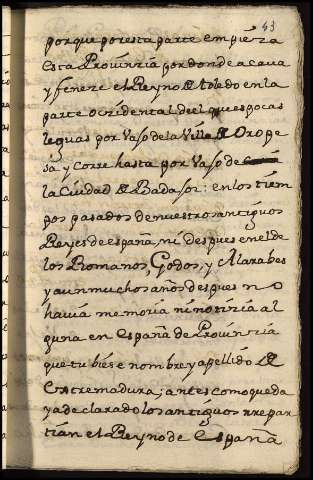 43
porque por esta parte empieza
esta Provinzia por donde acava
y fenere el Reyno de toledo en la
parte ocidental del que es pocas
leguas por vaso de la Villa de Orope
sa y corre hasta por vaso de
la Ciudad de Badasos: en los tiem
pos pasados de nuestros antiguos
Reyes de españa, ni despues en el de
los Romanos, Godos, y Alarabes
y aun muchos años despues no
havia memoria ni notizia al
guna en España de Provinzia
que tubiese nombre y apellido de
Extremadura; antes como queda
ya declarado los antiguos rrepar
tian el Reyno de España